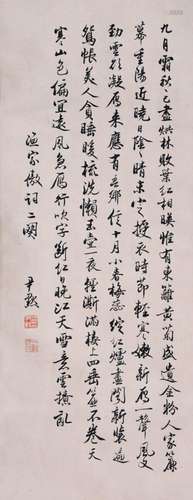 九月霜秋秋已盡烘林敗葉紅相暎惟有東籬黄菊盛遺金粉人家簾
幕重陽近曉日陰晴晴未定授衣時節輕寒嫩新雁一聲風又
勁雲欲凝雁來應有吾鄉信十月小春梅蕊綻紅爐畫閣新裝遍
鴛帳美人貪睡暖梳洗懶玉壺一夜輕澌滿樓上四垂簾不卷天
寒山色偏宜遠風急雁行吹字斷紅日晚江天雪意雲撩亂
漁家傲詞二闋
尹默